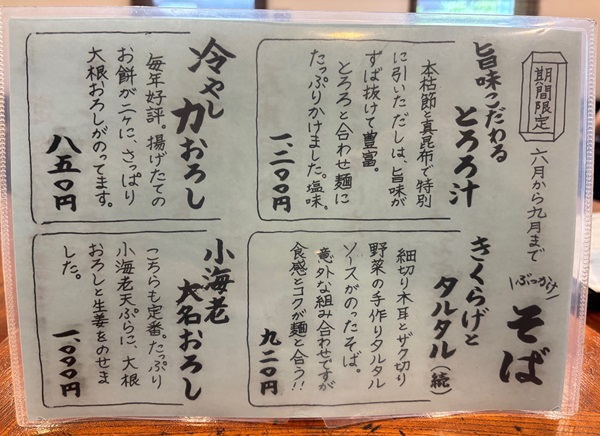 期間限定
六月から九月まで
ぶっかけ
そば
旨味こだわる
とろろ汁
本枯節と真昆布で特別
に引いただしは、旨味が
ずば抜けて豊富。
とろろと合わせ麺に
たっぷりかけました。塩味。
一、二〇〇円
きくらげと
タルタル(続)
細切り木耳とザク切り
野菜の手作りタルタル
ソースがのったそば。
意外な組み合わせですが
食感とコクが麺と合う!!
九二〇円
冷やし
力おろし
毎年好評。揚げたての
お餅が二ヶに、さっぱり
大根おろしがのってます。
八五〇円
小海老
大名おろし
こちらも定番。たっぷり
小海老天ぷらに、大根
おろしと生姜をのせま
した。
一、〇〇〇円